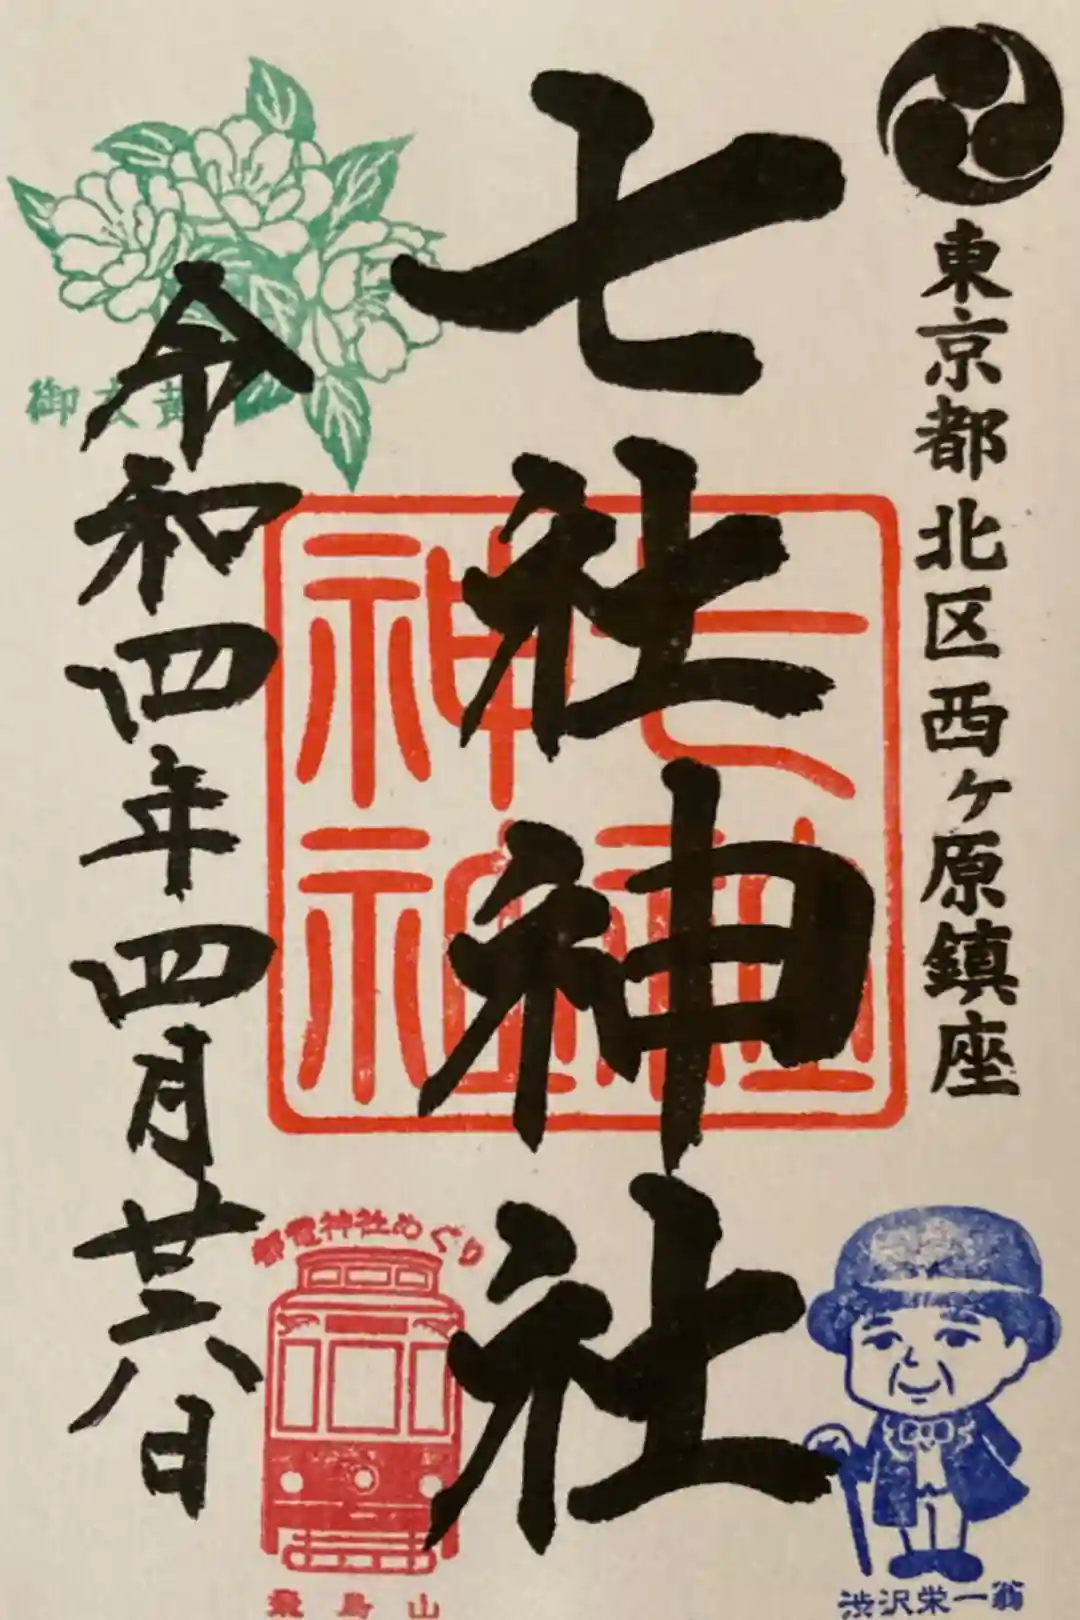 東京都北区西ヶ原鎮座
七社神社
七社神社
令和四年四月廿六日
御衣黄
都電神社めぐり
飛鳥山
渋沢栄一翁